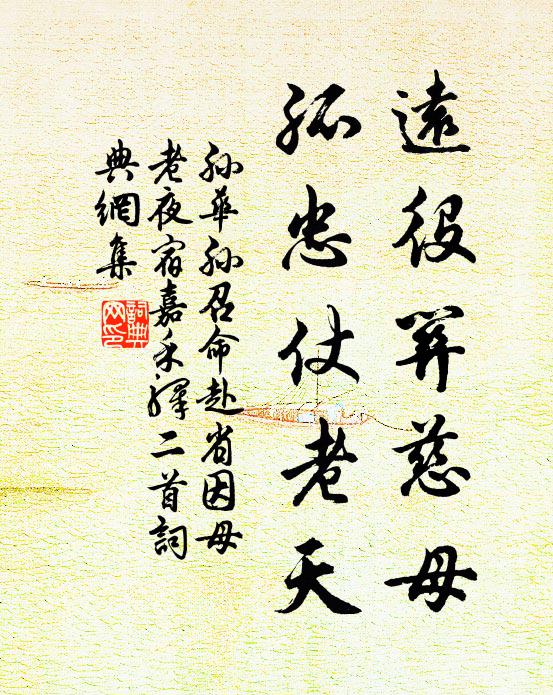 遠役 慈母
孤忠仗老天
孫華孫召命赴省因母
老夜宿嘉禾驛二首詞
典網集
詞典
网印